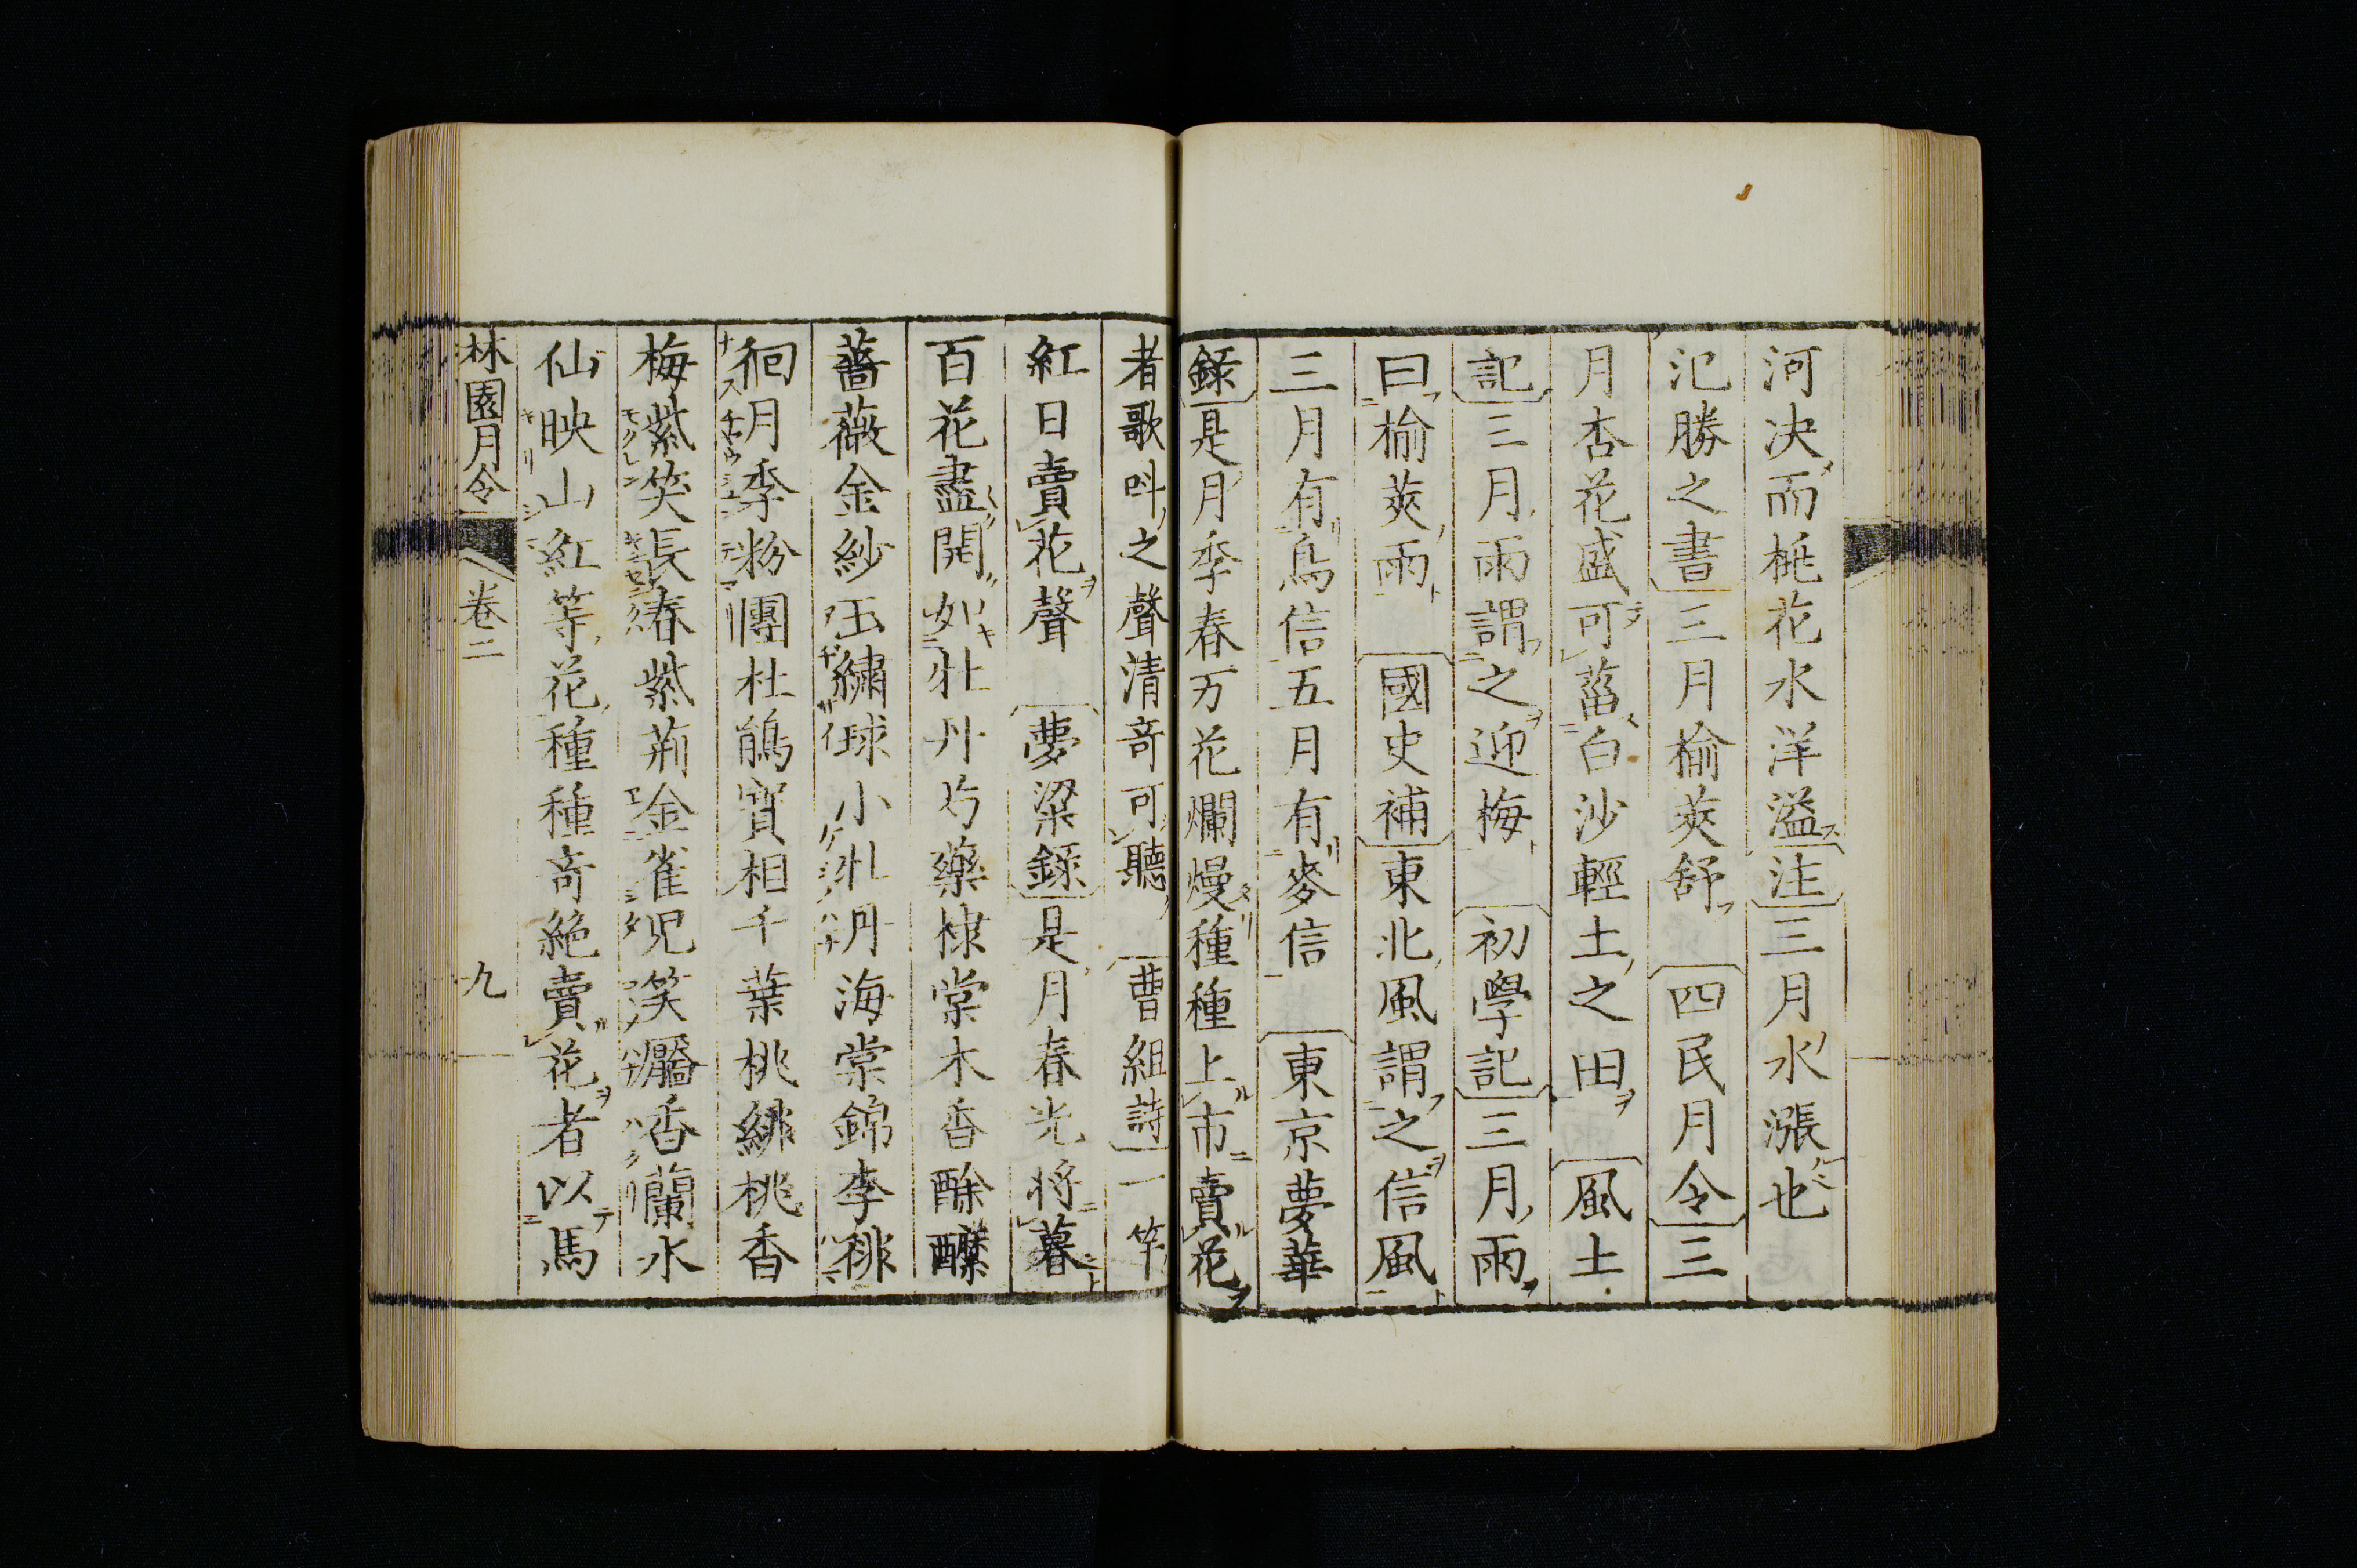 河决而桃花水洋溢注三月水漲也
氾勝之書三月榆莢舒　四民月令三
月杏花盛可菑白沙輕土之田　風土
記三月雨謂之迎梅　初學記三月雨
曰榆莢雨　國史補東北風謂之信風
三月有鳥信五月有麥信　東京夢華
錄是月季春万花爛熳種種上市賣花
者歌呌之聲清奇可聽　曹組詩一竿
紅日賣花聲　夢粱錄是月春光將暮
百花盡開如牡丹芍藥棣棠木香酴醾
薔薇金紗玉繡毬小牡丹海棠錦李徘
徊月季粉團杜鵑寳相千葉桃緋桃香
梅紫笑長春紫荊金雀兒笑靨香蘭水
仙映山紅等花種種奇絶賣花者以馬
林園月令　卷二　九